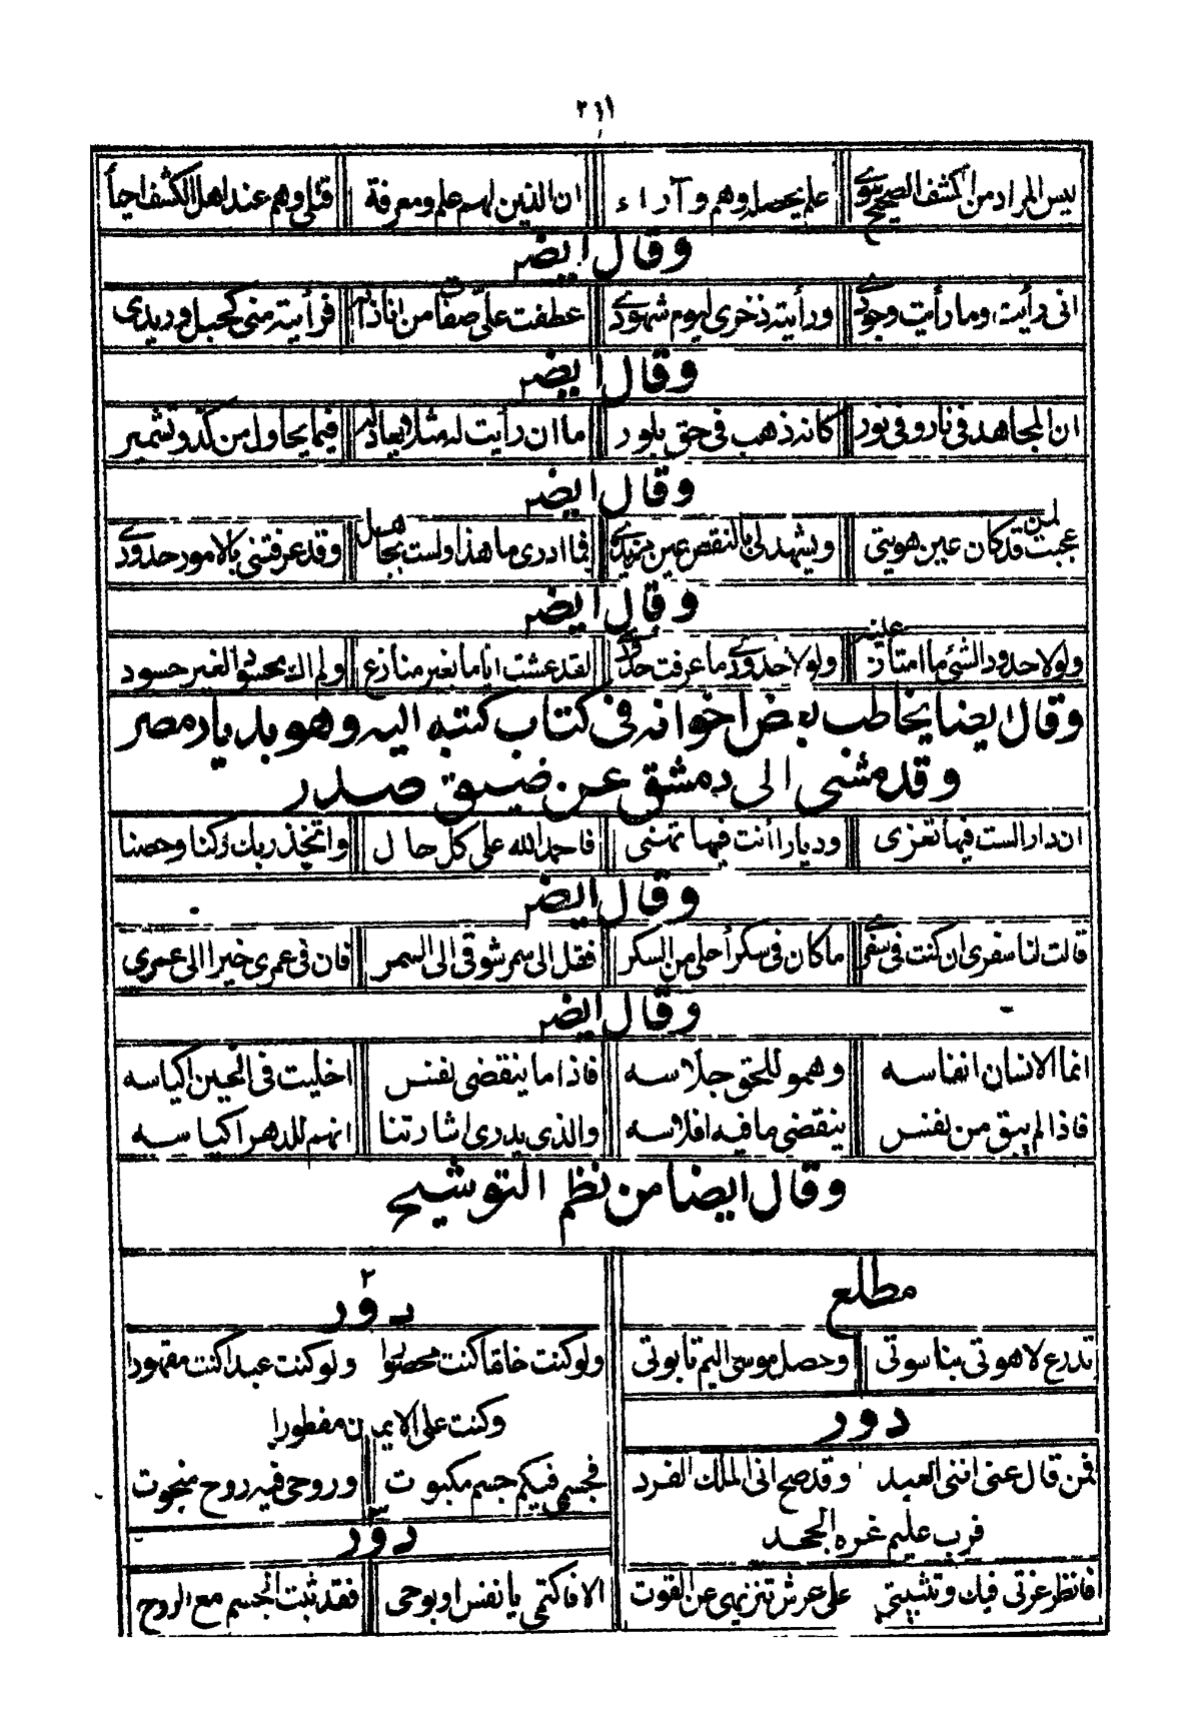 ٢٦١
ليس المراد من الكشف الصحيح سوى علم يحصله وهم وآراء ان الذين لهم علم ومعرفة قتلى وهم عند اهل الكشف احيا
وقال ايضا
انى رأيته وما رأيت وجودى ورأيته ذخرى ليوم شهودى عطفت علىّ صفات من انا ذاته فرأيته منى كحبل وريدى
وقال ايضا
ان المجاهد فى نار وفى نور كانه ذهب فى حق بلور ما ان رأيت له مثلا يعادله فيما يحاول من كد وتشمير
وقال ايضا
عجبت لمن قد كان عين هويتى ويشهد لى بالنقص عين مزيدى فما ادرى ما هذا ولست بجاهل وقد عرفتنى بالامور حدودى
وقال ايضا
ولولا حدود الشئ ما امتاز عينه ولولا حدودى ما عرفت لقد عشت اياما بغير منازع ولم اك محسودا لغير حسود
وقال ايضا يخاطب بعض اخوانه فى كتاب كتبه اليه وهو بديار مصر
وقد مشى الى دمشق عن ضيق صدر
ان دارا لست فيها تعزى وديارا أنت فيها تهنى فاحمد الله على كل حال واتخذ ربك ركنا وحصنا
وقال ايضا
قالت لنا سفرى ان كنت فى سفرى ما كان فى سكر أحلى من السكر فقل الى سمر شوقى الى السمر فان فى عمرى خيرا الى عمرى
وقال ايضا
انما الانسان انفاسه وهمو للحق جلاسه فاذا ما ينقضى نفس اخليت فى الحين اكياسه
فاذا لم يبق من نفس ينقضى ما فيه افلاسه والذى يدرى اشارتنا انهم للدهر اكياسه
وقال ايضا من نظم التوشيح
مطلع
تدرع لاهوتى بناسوتى وحصل موسى اليم تابوتى
دور
فمن قال عنى اننى العبد وقد صح انى الملك الفرد
فرب عليم غره الجحد
فانظر عزتى فيك وتثبيتى على عرش تنزيهى عن القوت
دور ٢
ولو كنت خالقا كنت محصورا ولو كنت عبدا كنت مقهورا
وكنت على الايمان مفطورا
فجسمى فيكم جسم مكبوت وروحى فيه روح منجوت
دور ٣
الا فاكتمى يا نفس او بوحى فقد ثبت الجسم مع الروح